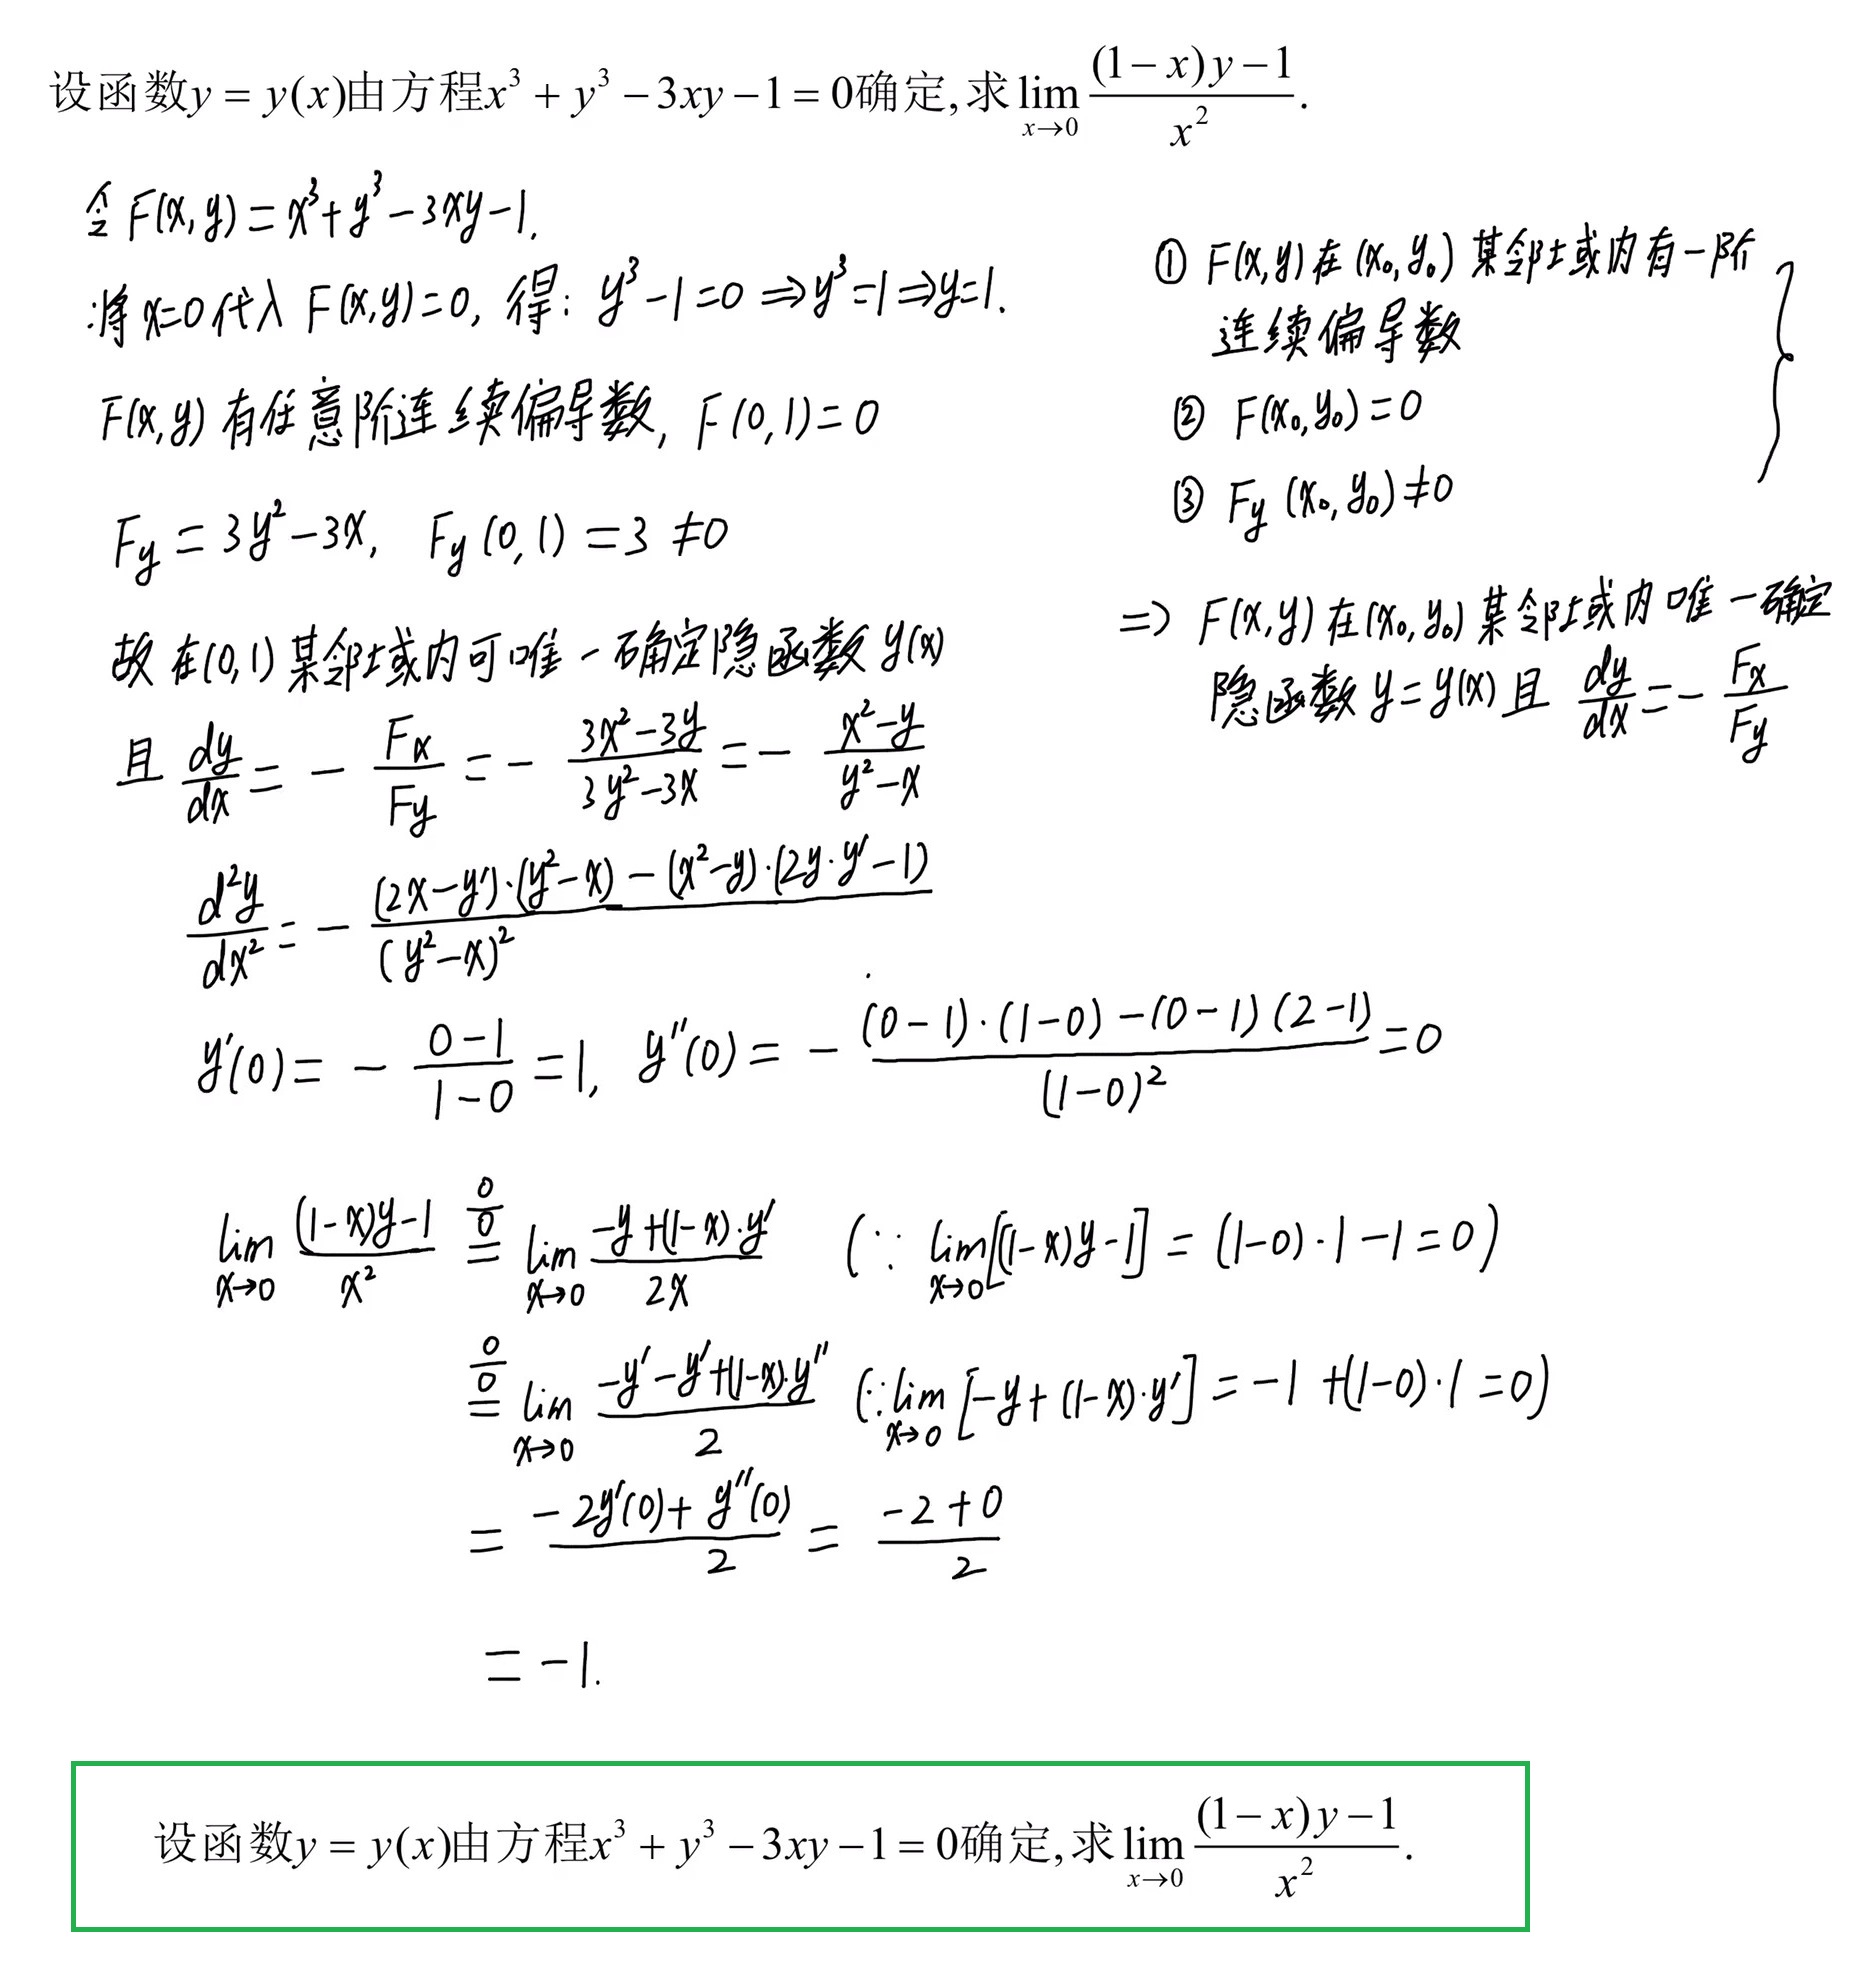 设函数y = y(x)由方程x³ + y³ − 3xy − 1 = 0确定,求lim_{x→0} ((1−x)y−1)/x².
令 F(x,y) = x³+y³−3xy−1.
将 x=0 代入 F(x,y)=0, 得: y³−1=0 ⇒ y³=1 ⇒ y=1.
F(x,y) 有任意阶连续偏导数, F(0,1)=0
F_y = 3y²−3x, F_y(0,1) = 3 ≠0
故在(0,1)某邻域内可唯一确定隐函数 y(x)
且 dy/dx = − F_x/F_y = − (3x²−3y)/(3y²−3x) = − (x²−y)/(y²−x)
d²y/dx² = − ((2x−y′)·(y²−x)−(x²−y)·(2y·y′−1))/(y²−x)²
y′(0) = − (0−1)/(1−0) = 1, y″(0) = − ((0−1)·(1−0)−(0−1)(2−1))/(1−0)² = 0
① F(x,y) 在 (x₀,y₀) 某邻域内有一阶
连续偏导数
② F(x₀,y₀)=0
③ F_y (x₀,y₀)≠0
⇒ F(x,y) 在(x₀,y₀) 某邻域内唯一确定
隐函数 y=y(x) 且 dy/dx = − F_x/F_y
lim_{x→0} ((1−x)y−1)/x² =^{0/0} lim_{x→0} (−y+(1−x)·y′)/(2x) (∵ lim_{x→0}[(1−x)y−1] = (1−0)·1−1=0)
=^{0/0} lim_{x→0} (−y′−y′+(1−x)·y″)/2 (∵ lim_{x→0} [−y+(1−x)·y′] = −1+(1−0)·1=0)
= (−2y′(0)+y″(0))/2 = (−2+0)/2
= −1.
设函数y = y(x)由方程x³ + y³ − 3xy − 1 = 0确定,求lim_{x→0} ((1−x)y−1)/x².